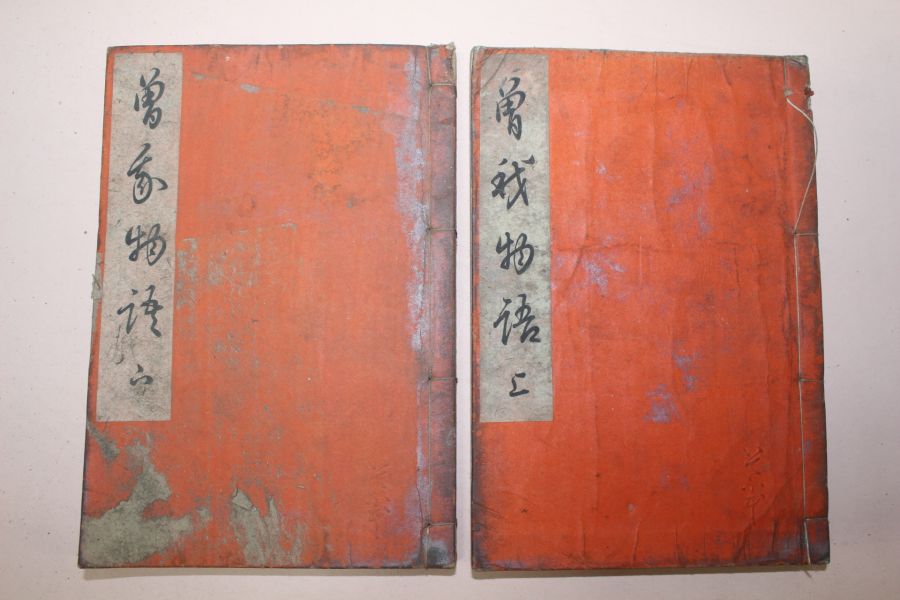 曽我物語 下
曽我物語 上